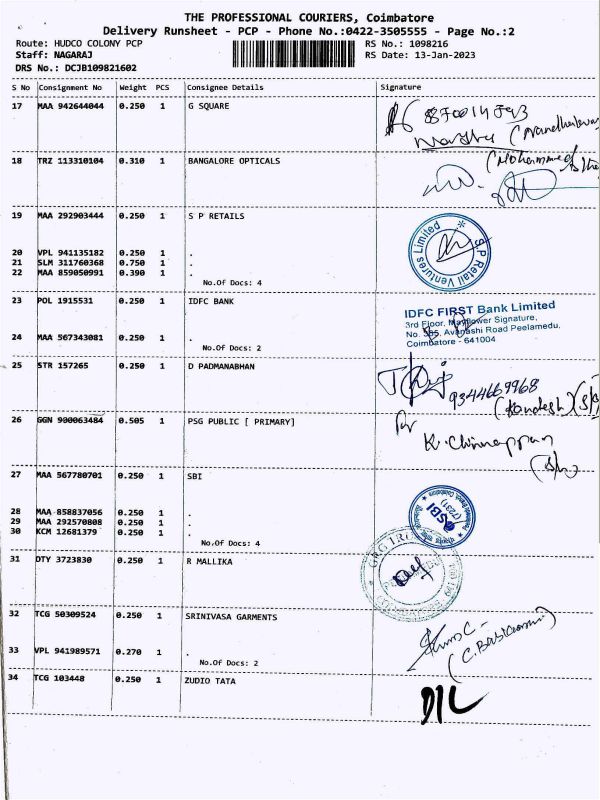 THE PROFESSIONAL COURIERS, Coimbatore
Delivery Runsheet - PCP - Phone No.:0422-3505555 - Page No.:2
Route: HUDCO COLONY PCP RS No.: 1098216
Staff: NAGARAJ RS Date: 13-Jan-2023
DRS No.: DCJB109821602
S No Consignment No Weight PCS Consignee Details Signature
17 MAA 942644044 0.250 1 G SQUARE
18 TRZ 113310104 0.310 1 BANGALORE OPTICALS
19 MAA 292903444 0.250 1 S P RETAILS
S.P Retail Ventures Limited
20 VPL 941135182 0.250 1 .
21 SLM 311760368 0.750 1 .
22 MAA 859050991 0.390 1 .
No.Of Docs: 4
23 POL 1915531 0.250 1 IDFC BANK
IDFC FIRST Bank Limited
3rd Floor, Mayflower Signature,
No. Avanashi Road Peelamedu,
Coimbatore - 641004
24 MAA 567343081 0.250 1 .
No.Of Docs: 2
25 STR 157265 0.250 1 D PADMANABHAN
9344669968
26 GGN 900063484 0.505 1 PSG PUBLIC [ PRIMARY]
K. Chinnappan
27 MAA 567780701 0.250 1 SBI
SBI
28 MAA 858837056 0.250 1 .
29 MAA 292570808 0.250 1 .
30 KCM 12681379 0.250 1 .
No.Of Docs: 4
31 DTY 3723830 0.250 1 R MALLIKA
32 TCG 50309524 0.250 1 SRINIVASA GARMENTS
33 VPL 941989571 0.270 1 .
No.Of Docs: 2
34 TCG 103448 0.250 1 ZUDIO TATA